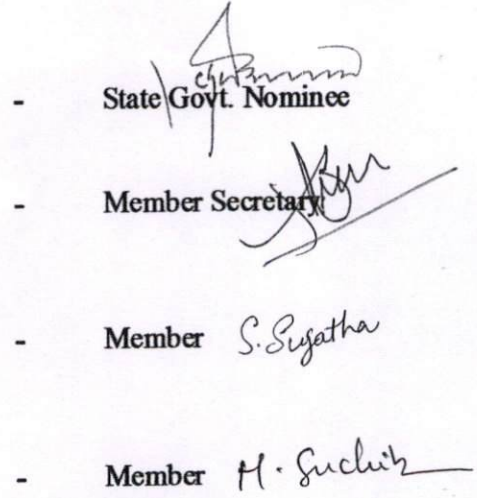 - State Govt. Nominee
- Member Secretary
- Member S. Sugatha
- Member M.